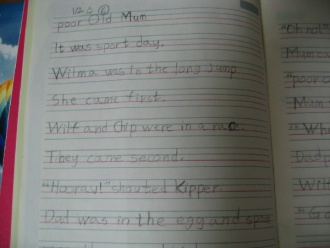 poor Old Mum
It was sport day.
Wilma was in the long jump
She came first.
Wilf and Chip were in a race.
They came second.
"Hooray!" shouted Kipper.
Dad was in the egg and spoo
"Oh no!"
Mum
"poor
Mum
"W
Dad
"W
"G